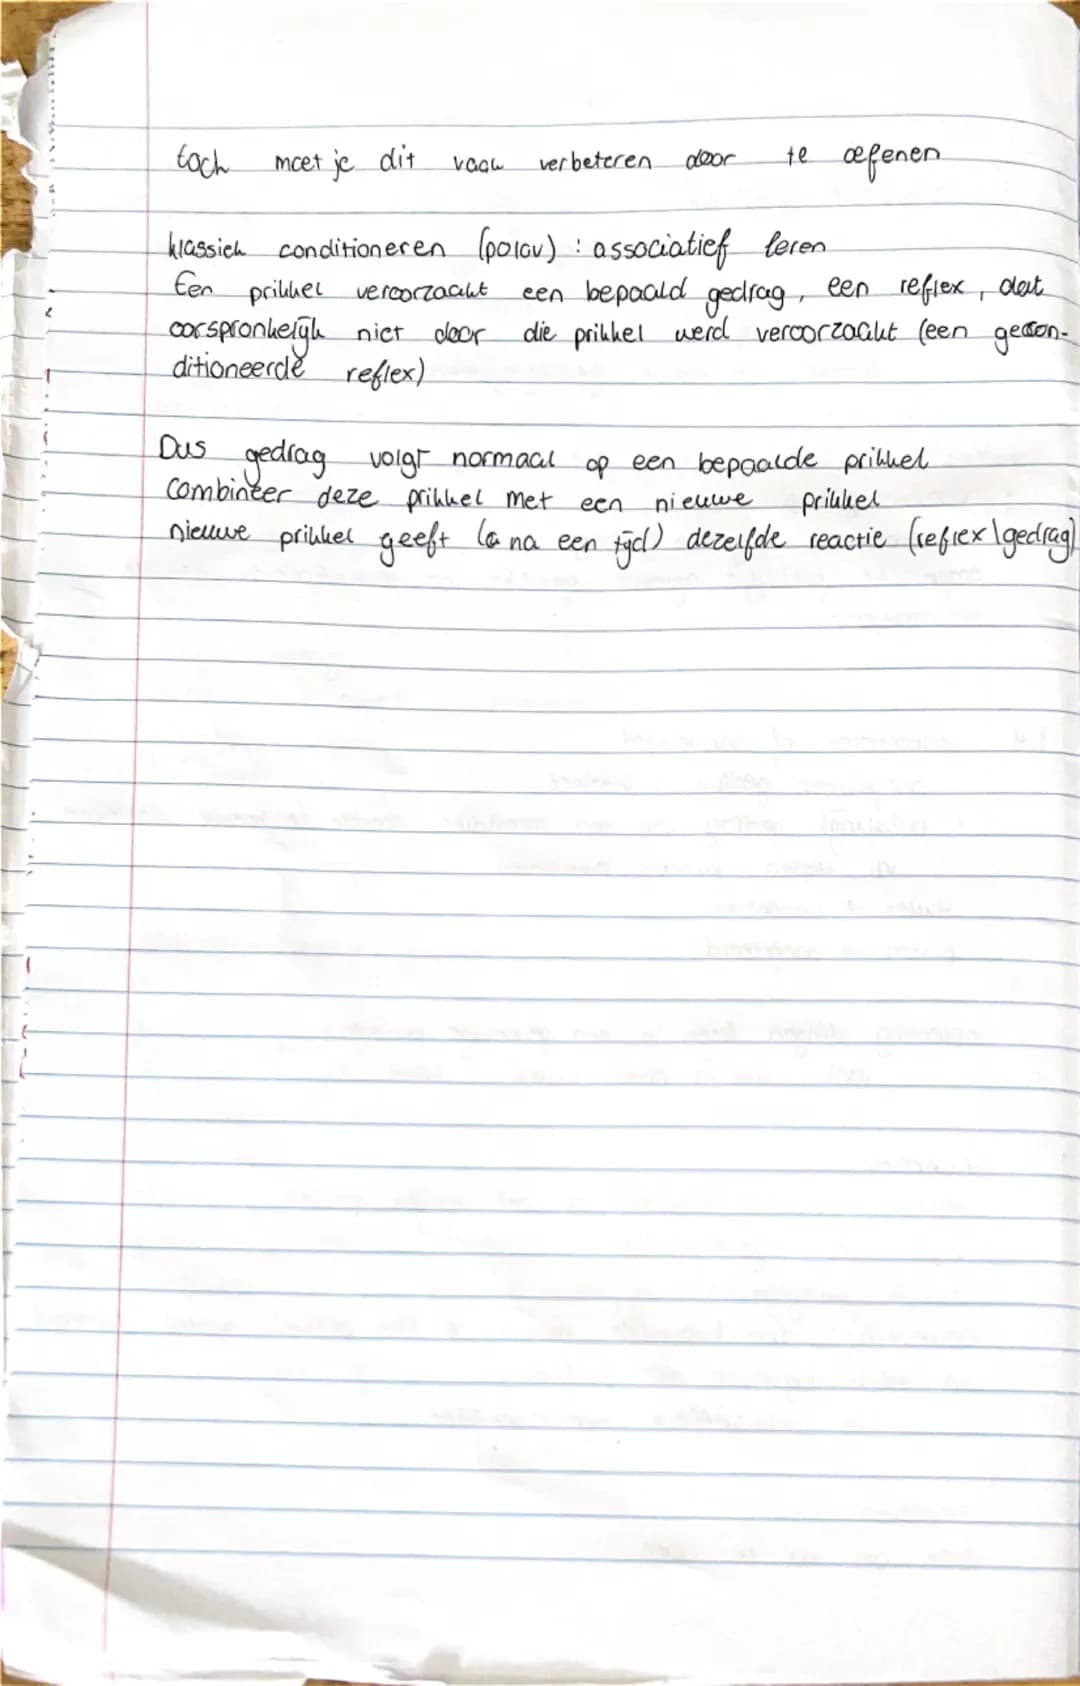 toch moet je dit vaak verbeteren door te oefenen
klassiek conditioneren (palov) : associatief leren
Een prikkel veroorzaakt een bepaald gedrag, een reflex, dat
oorspronkelijk niet door die prikkel werd veroorzaakt (een gecon-
ditioneerde reflex)
Dus gedrag volgt normaal op een bepaalde prikkel
Combineer deze prikkel met een nieuwe prikkel
nieuwe prikkel geeft (a na een tijd) dezelfde reactie (reflex\gedrag)